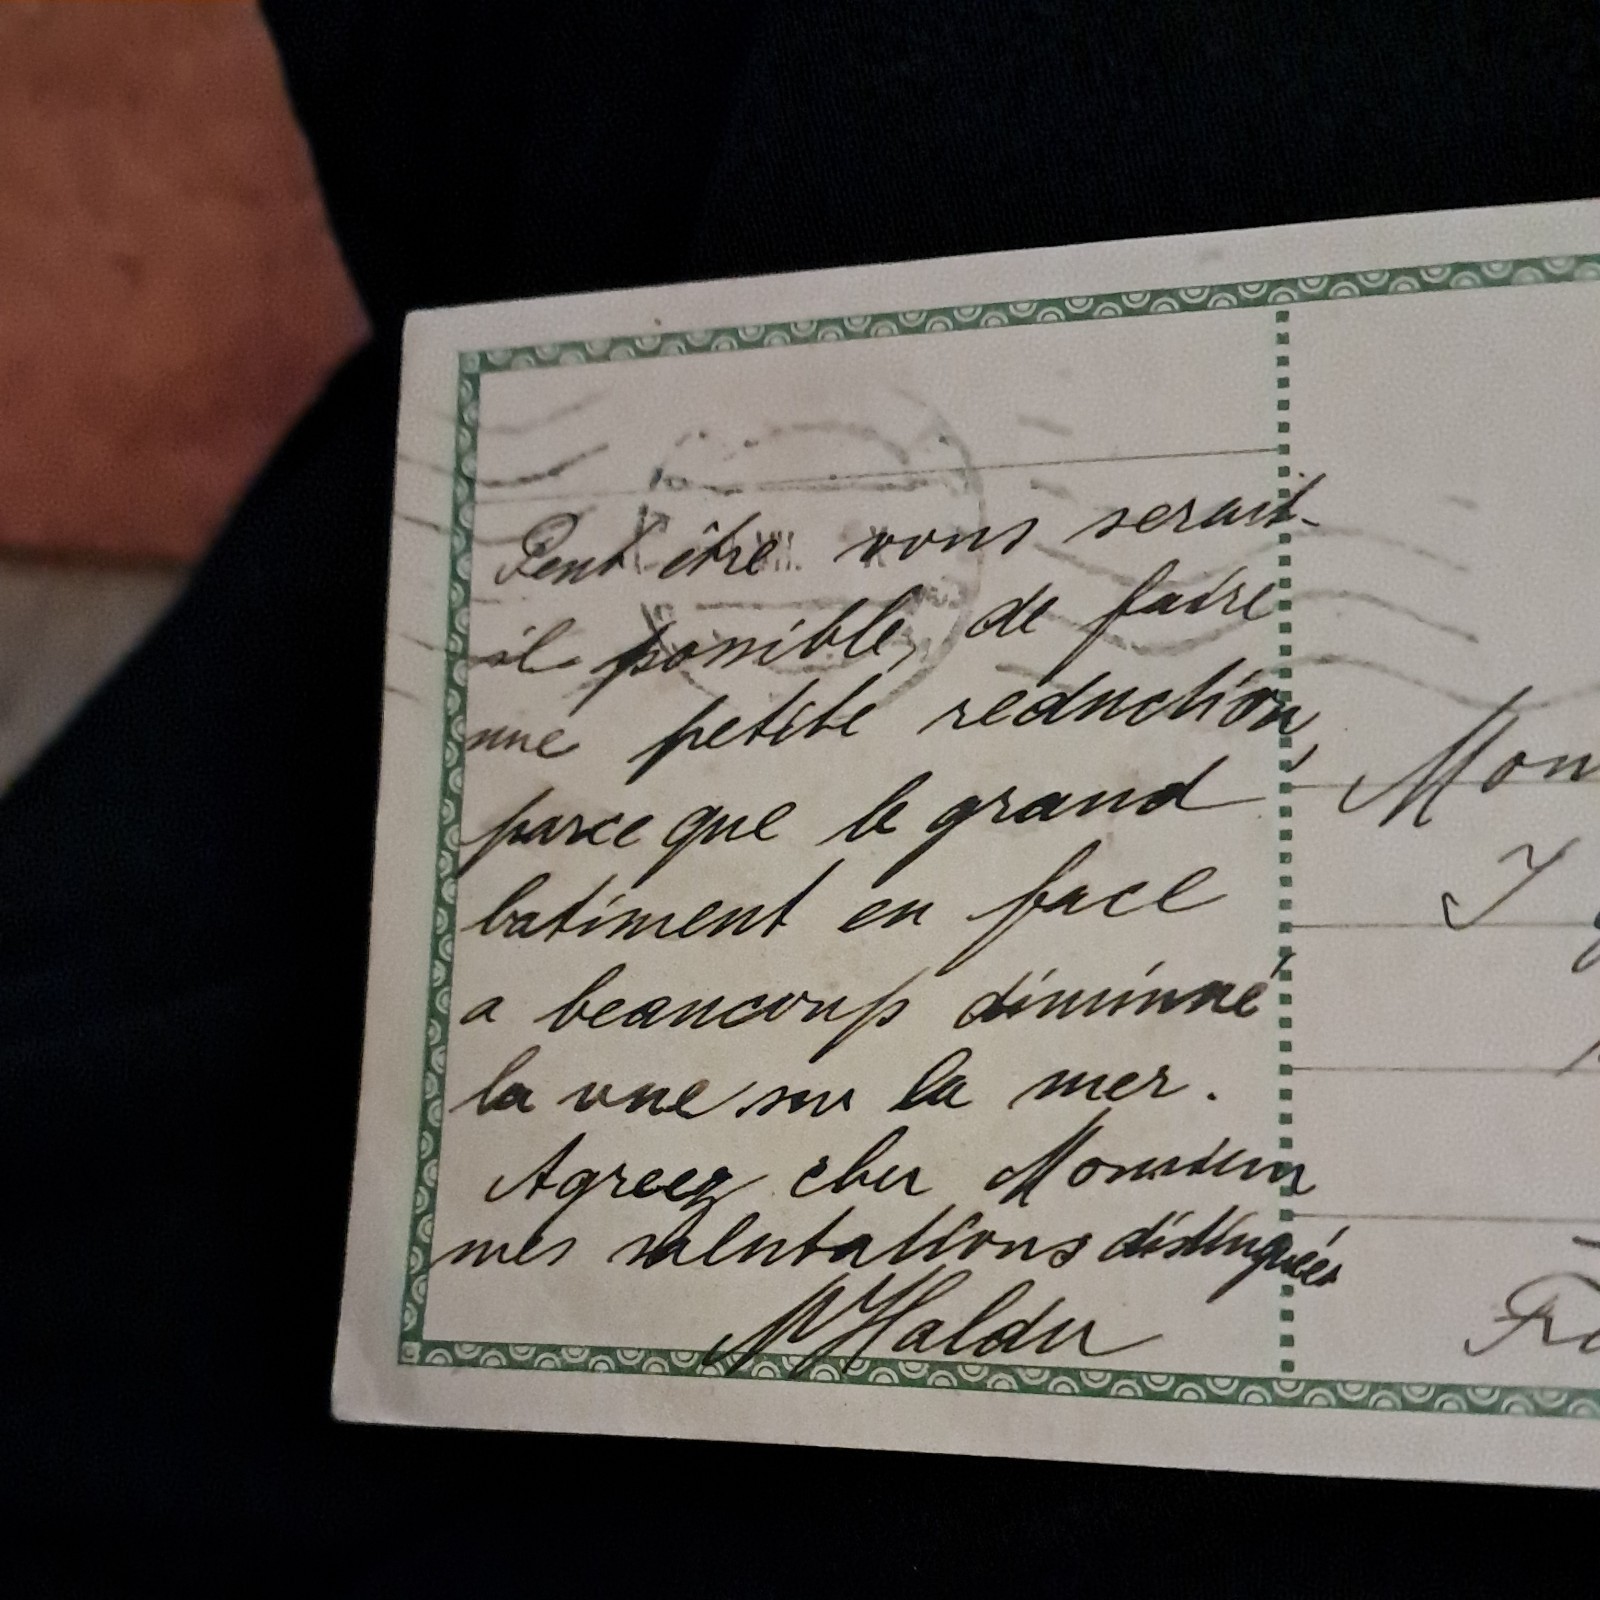 Peut être vous serait-
il possible, de faire
une petite reduction,
parce que le grand
batiment en face
a beaucoup diminué
la vue sur la mer.
Agreez cher Monsieur
mes salutations distinguées
Halder
Mon